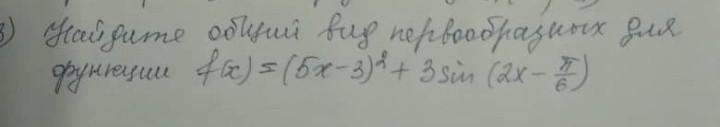 3) Найдите общий вид первообразных для
функции f(x) = (5x-3)² + 3 sin (2x - π/6)